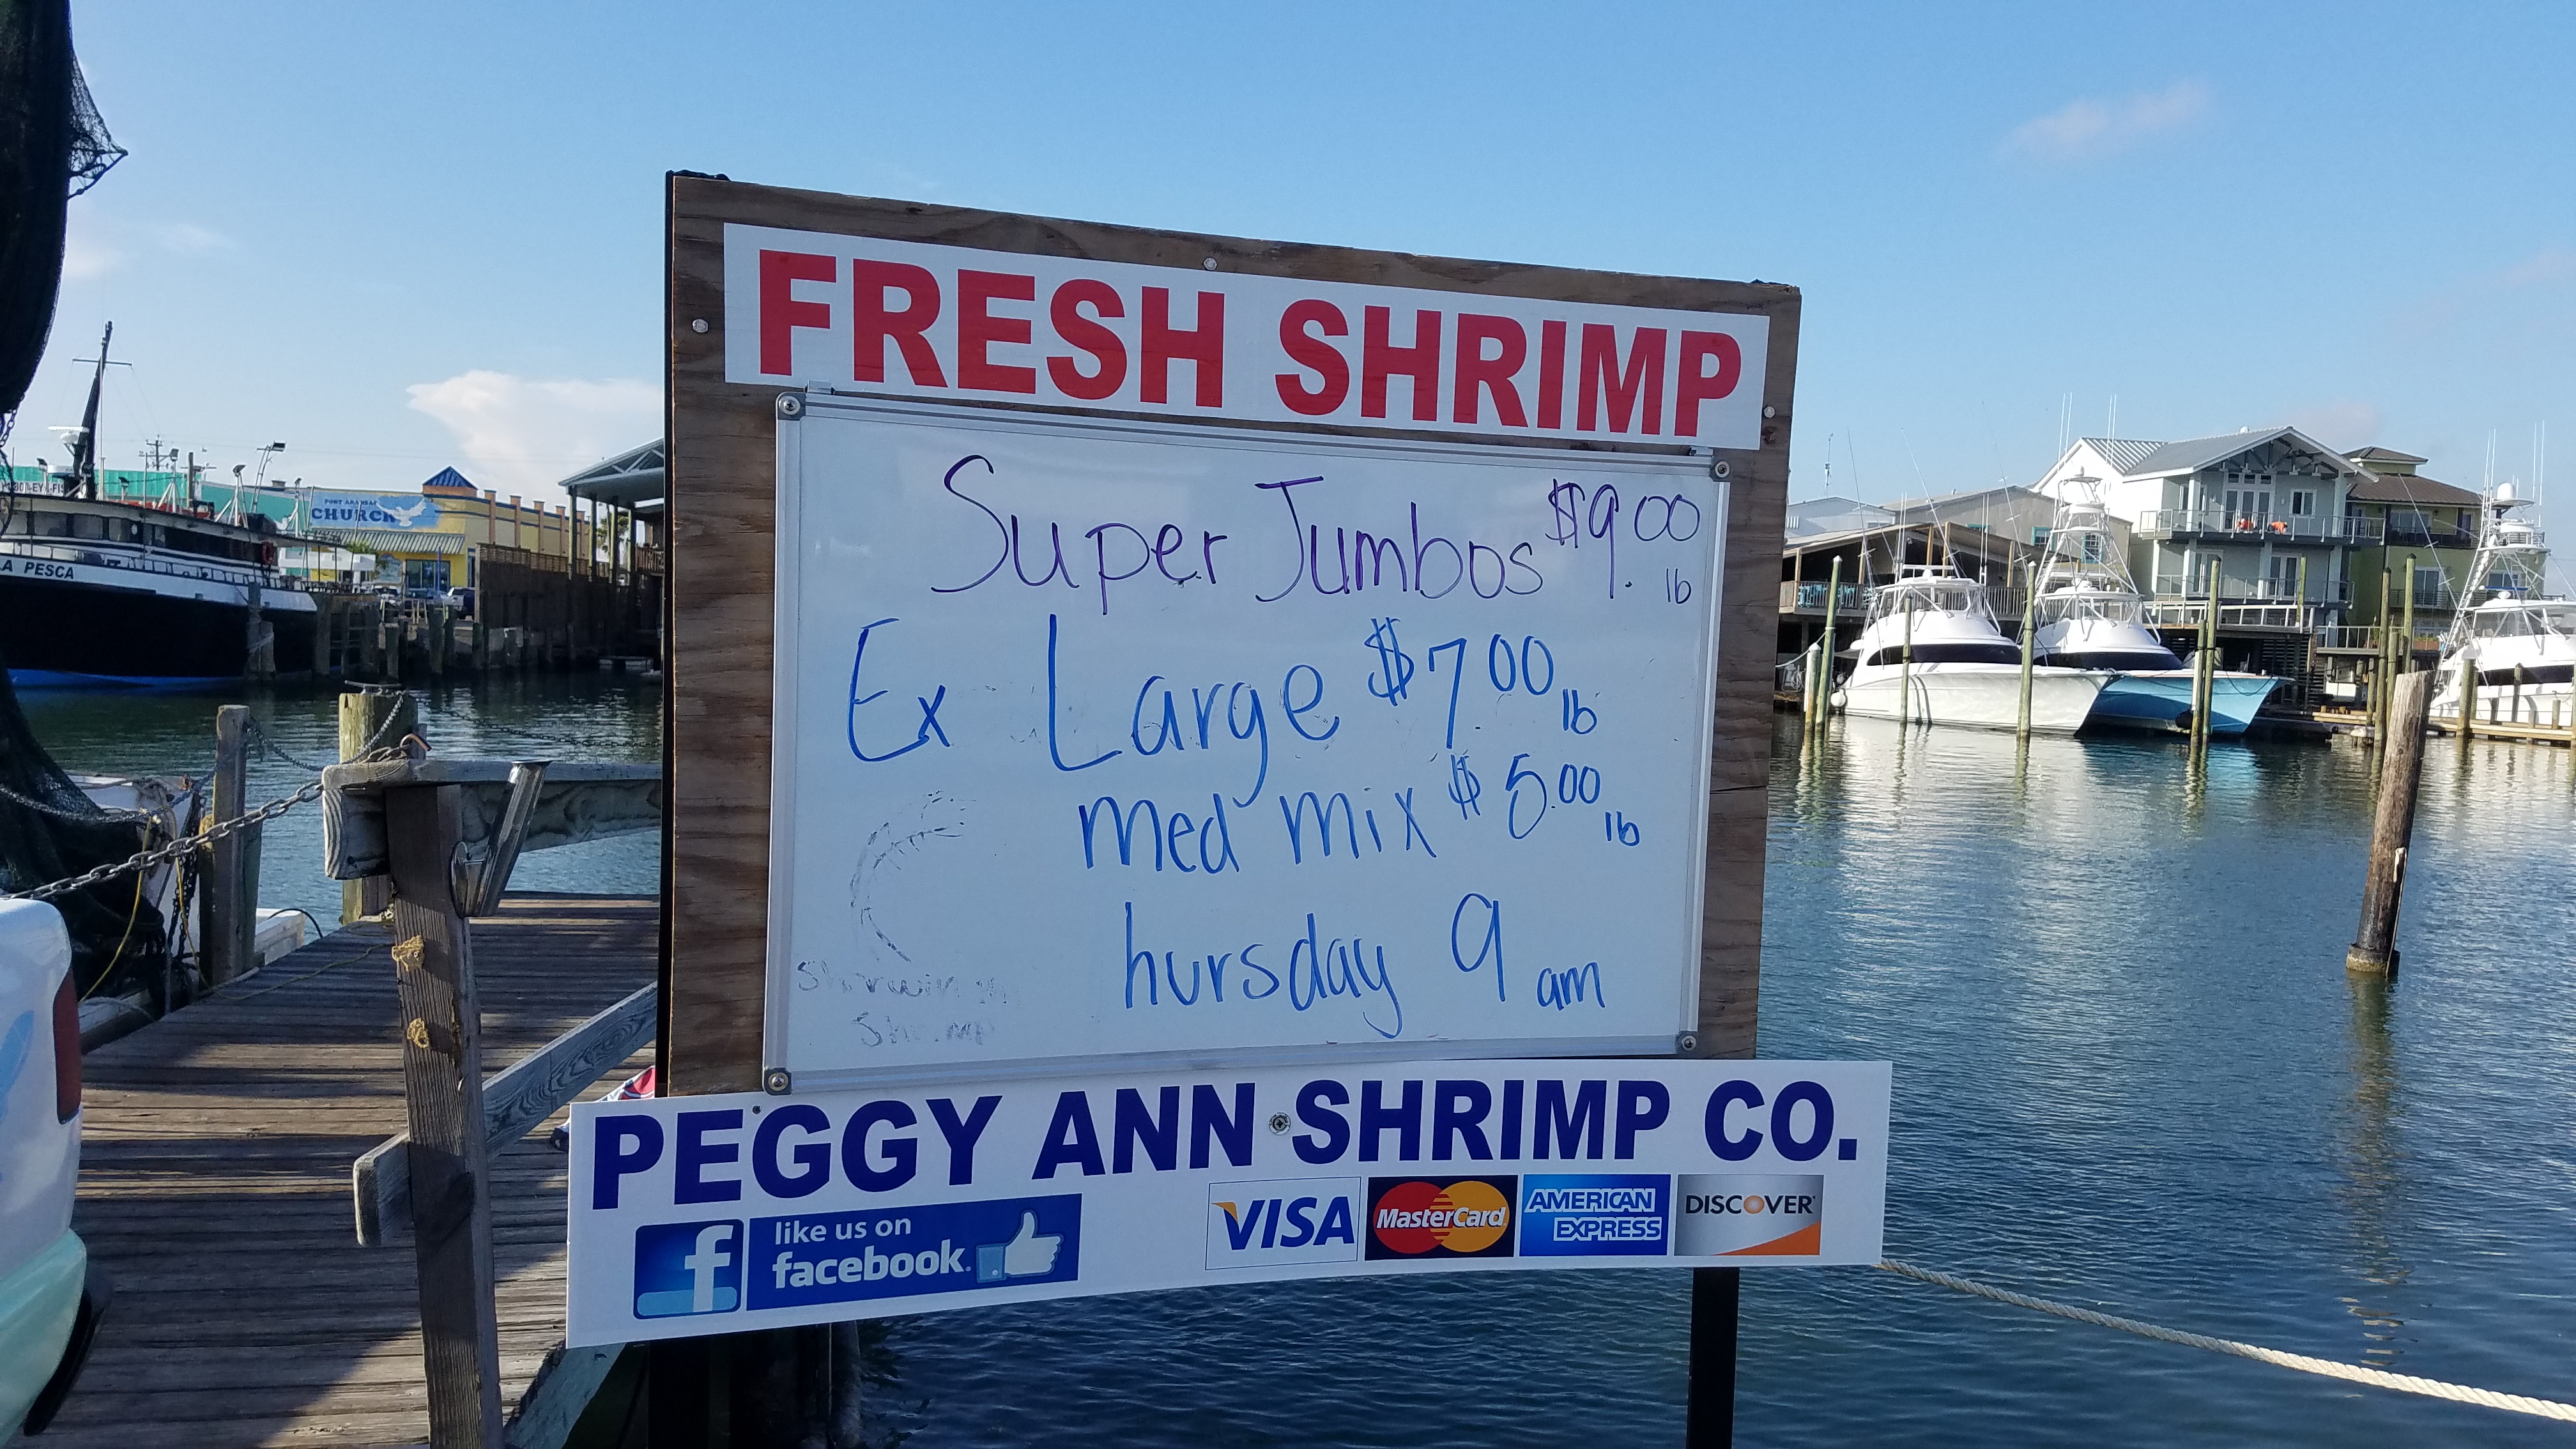 FRESH SHRIMP
Super Jumbos $9.00 lb
Ex Large $7.00 lb
med mix $5.00 lb
hursday 9 am
Shrimp
PEGGY ANN SHRIMP CO.
f like us on
facebook.
VISA MasterCard AMERICAN EXPRESS DISCOVER
PORT ARANSAS
CHURCH
LA PESCA